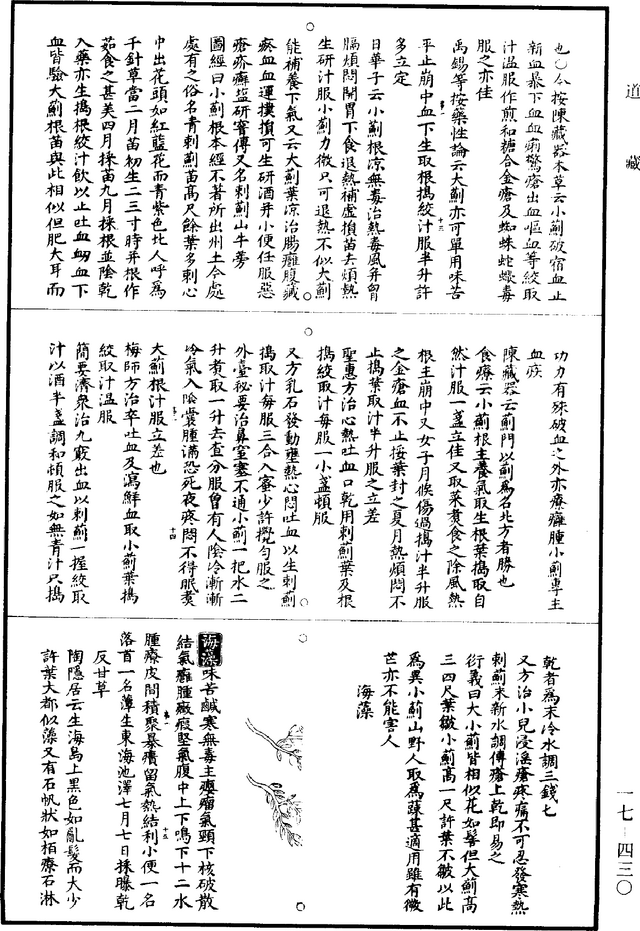 道藏
也○今按陳藏器本草云小薊破宿血止
新血暴下血血痢驚瘡出血嘔血等絞取
汁溫服作煎和糖合金瘡及蜘蛛蛇蠍毒
服之亦佳
禹錫等按藥性論云大薊亦可單用味苦
平止崩中血下生取根搗絞汁服半升許
多立定
日華子云小薊根涼無毒治熱毒風并胷
膈煩悶開胃下食退熱補虛損苗去煩熱
生研汁服小薊力微只可退熱不似大薊
能補養下氣又云大薊葉涼治腸癰腹藏
瘀血血運撲損可生研酒并小便任服惡
瘡疥癬鹽研窨傅又名刺薊山牛蒡
圖經曰小薊根本經不著所出州土今處
處有之俗名青刺薊苗高尺餘葉多刺心
中出花頭如紅藍花而青紫色北人呼爲
千針草當二月苗初生二三寸時并根作
茹食之甚美四月採苗九月採根並陰乾
入藥亦生搗根絞汁飲以止吐血衂血下
血皆驗大薊根苗與此相似但肥大耳而
十三
功力有殊破血之外亦療癰腫小薊專主
血疾
陳藏器云薊門以薊爲名北方者勝也
食療云小薊根主養氣取生根葉搗取自
然汁服一盞立佳又取菜煮食之除風熱
根主崩中又女子月候傷過搗汁半升服
之金瘡血不止挼葉封之夏月熱煩悶不
止搗葉取汁半升服之立差
聖惠方治心熱吐血口乾用刺薊葉及根
搗絞取汁每服一小盞頓服
又方乳石發動壅熱心悶吐血以生刺薊
搗取汁每服三合入蜜少許攪勻服之
外臺祕要治鼻窒塞不通小薊一把水二
升煮取一升去查分服曾有人陰冷漸漸
冷氣入陰裳腫滿恐死夜疼悶不得眠煑
大薊根汁服立差也
梅師方治卒吐血及瀉鮮血取小薊葉搗
絞取汁溫服
簡要濟衆治九竅出血以刺薊一握絞取
汁以酒半盞調和頓服之如無青汁只搗
十四
乾者爲末冷水調三錢匕
又方治小兒浸淫瘡疼痛不可忍發寒熱
刺薊末新水調傅瘡上乾即易之
衍義曰大小薊皆相似花如髻但大薊高
三四尺葉皺小薊高一尺許葉不皺以此
爲異小薊山野人取爲蔬甚適用雖有微
芒亦不能害人
海藻
海藻味苦鹹寒無毒主癭瘤氣頸下核破散
結氣癰腫癥瘕堅氣腹中上下鳴下十二水
腫療皮間積聚暴㿉留氣熱結利小便一名
落首一名藫生東海池澤七月七日採曝乾
反甘草
陶隱居云生海島上黑色如亂髮而大少
許葉大都似藻又有石帆狀如栢療石淋
十五
一七—四三〇